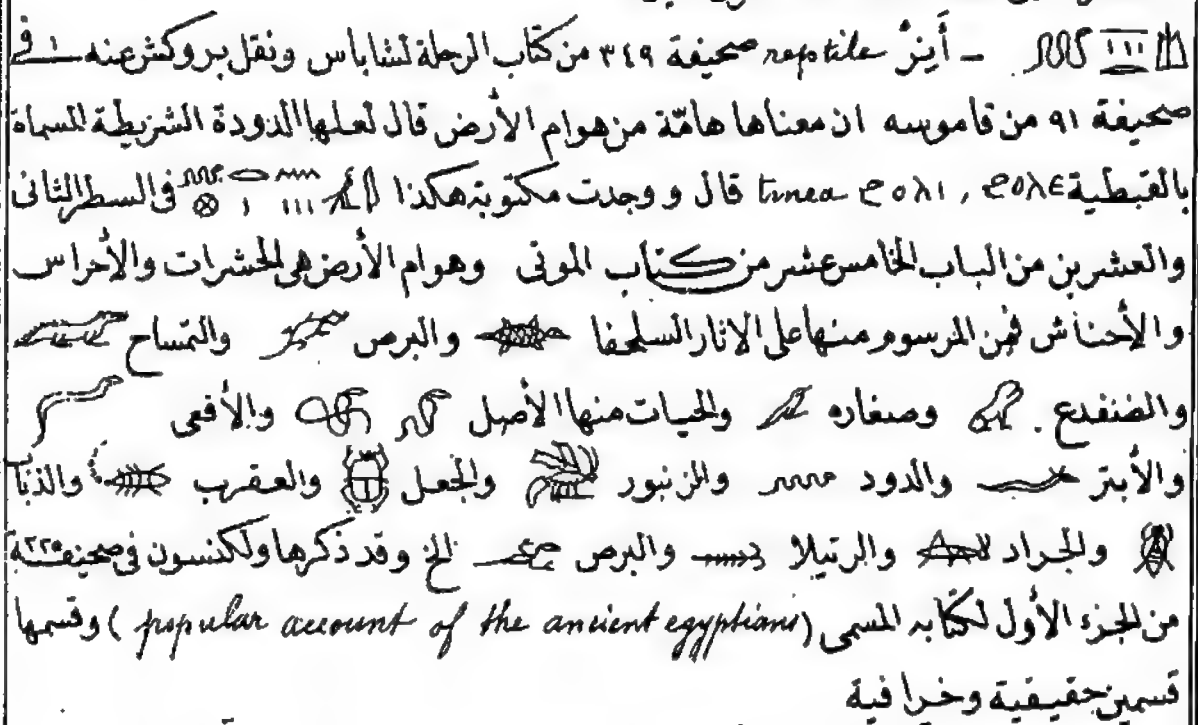 – أَيِنرُ reptile صحيفة ٣٤٩ من كتاب الرحلة لشاباس ونقل بروكش عنه فى
صحيفة ٩١ من قاموسه ان معناها هامّة من هوام الأرض قال لعلها الدودة الشريطة المسماة
بالقبطية ϩⲟⲗⲉ , ϩⲟⲗⲓ tinea قال ووجدت مكتوبة هكذا فى السطر الثانى
والعشرين من الباب الخامس عشر من كتاب الموتى وهوام الأرض هى الحشرات والأحراس
والأحناش فمن المرسوم منها على الاثار السلحفا والبرص والتمساح
والضفدع . وصغاره والحيات منها الأصل والأفعى
والأبتر والدود والزنبور والجعل والعقرب والذباب
والجراد والرتيلا والبرص الخ وقد ذكرها ولكنسون فى صحيفة ٢٢٥
من الجزء الأول لكتابه المسمى (popular account of the ancient egyptians) وقسمها
قسمين حقيقية وخرافية